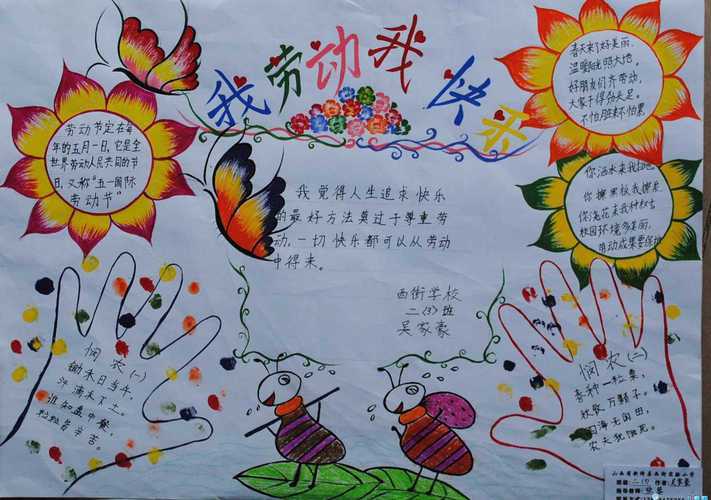 我劳动我快乐
劳动节定在每
年的五月一日,它是全
世界劳动人民共同的节
日,又称“五一国际
劳动节”
春天来了好美丽,
温暖阳光照大地。
好朋友们齐劳动,
大家干得劲头足。
不怕脏来不怕累
你洒水来我扫地
你擦黑板我擦桌
你浇花来我种
校园环境多美丽,
劳动成果要保护
我觉得人生追求快乐
的最好方法莫过于尊重劳
动,一切快乐都可以从劳动
中得来。
西街学校
二(3)班
吴家豪
悯农(一)
锄禾日当午,
汗滴禾下土。
谁知盘中餐,
粒粒皆辛苦。
悯农(二)
春种一粒粟,
秋收万颗子。
四海无闲田,
农夫犹饿死。
作者:吴家豪